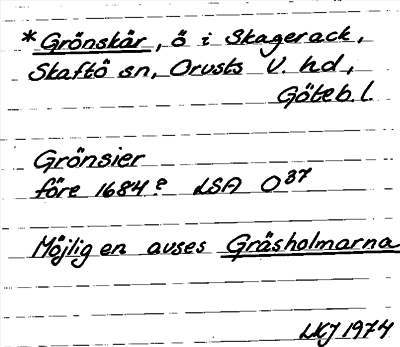 *Grönskär, ö i Skagerack,
Skaftö sn, Orusts V. hd,
Göteb. l.
Grönsier
före 1684? LSA O37
Möjligen avses Gräsholmarna
LKJ 1974